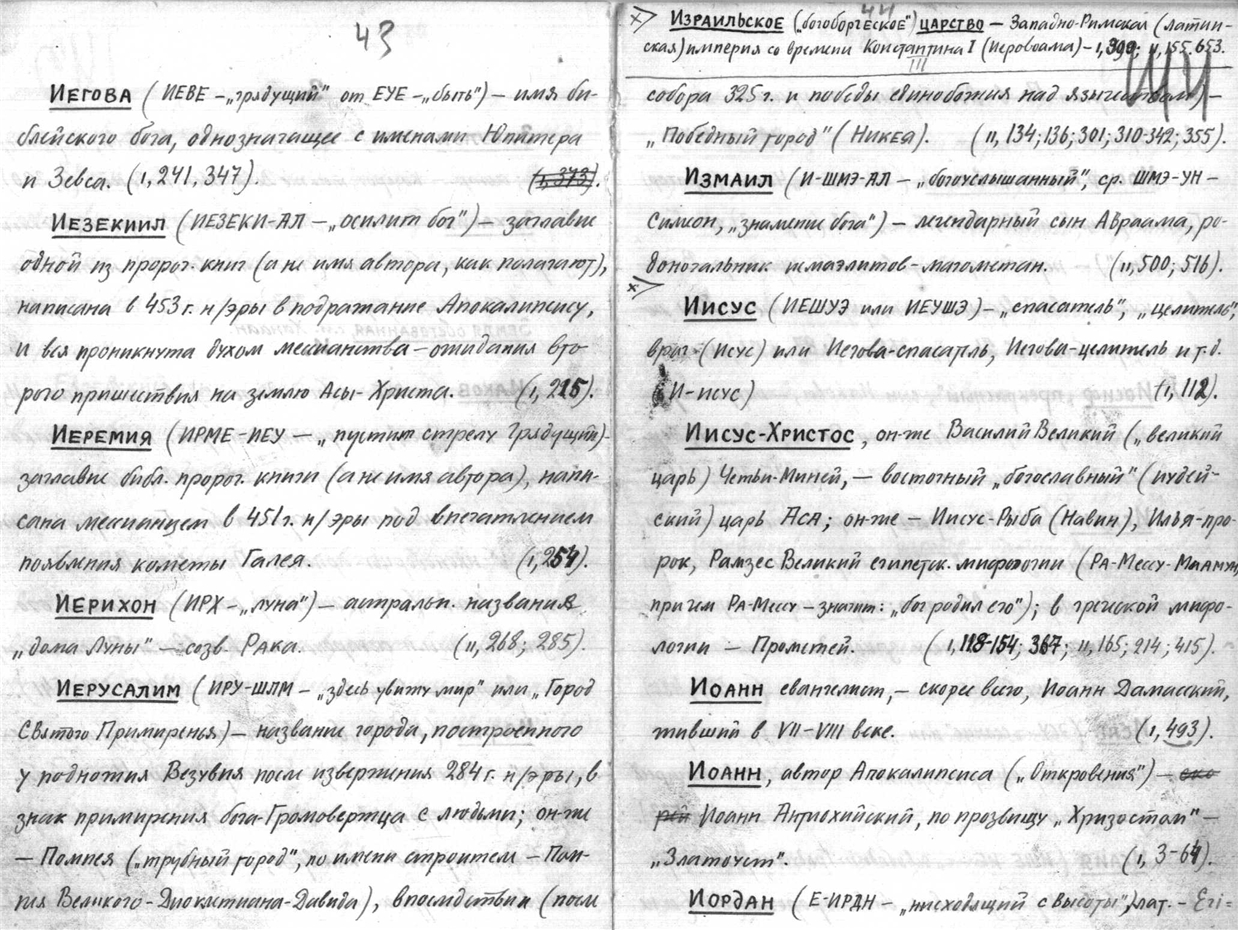 43
ИЕГОВА (ИЕВЕ –„грядущий" от ЕУЕ –„быть") – имя би-
блейского бога, однозначащее с именами Юпитера
и Зевса. (I, 241, 347). (I, 373).
ИЕЗЕКИИЛ (ИЕЗЕКИ-АЛ –„осилит бог") – заглавие
одной из пророч. книг (а не имя автора, как полагают),
написана в 453 г. н/эры в подражание Апокалипсису,
и вся проникнута духом мессианства – ожидания вто-
рого пришествия на землю Асы-Христа. (I, 215).
ИЕРЕМИЯ (ИРМЕ-ИЕУ –„пустит стрелу Грядущий)–
заглавие библ. пророч. книги (а не имя автора), напи-
сана мессианцем в 451 г. н/эры под впечатлением
появления кометы Галея. (I, 254).
ИЕРИХОН (ИРХ –„луна") – астральн. название
„дома Луны" – созв. Рака. (II, 268; 285).
ИЕРУСАЛИМ (ИРУ-ШЛМ –„здесь увижу мир" или „Город
Святого Примиренья) – название города, построенного
у подножия Везувия после извержения 284 г. н/эры, в
знак примирения бога-Громовержца с людьми; он-же
– Помпея („трубный город", по имени строителя – Пом-
пия Великого-Диоклетиана-Давида), впоследствии (после
44
×> ИЗРАИЛЬСКОЕ („богоборческое") ЦАРСТВО – Западно-Римская (латин-
ская) империя со времени Константина I (Иеровоама) – I, 399; II, 155. 653.
III
44
собора 325 г. и победы единобожия над язычеством) –
„Победный город" (Никея). (II, 134; 136; 301; 310-342; 355).
ИЗМАИЛ (И-ШМЭ-АЛ –„богоуслышанный", ср. ШМЭ-УН –
Симеон, „знамение бога") – легендарный сын Авраама, ро-
доначальник измаэлитов-магометан. (II, 500; 516).
×>
ИИСУС (ИЕШУЭ или ИЕУШЭ) –„спасатель", „целитель",
врач (Исус) или Иегова-спасатель, Иегова-целитель и т.д.
(И-исус) (I, 112).
ИИСУС-ХРИСТОС, он-же Василий Великий („великий
царь) Четьи-Миней, – восточный „богославный" (иудей-
ский) царь Аса; он-же – Иисус-Рыба (Навин), Илья-про-
рок, Рамзес Великий египетск. мифологии (Ра-Мессу-Миамун,
причем Ра-Мессу – значит: „бог родил его"); в греческой мифо-
логии – Прометей. (I, 118-154; 367; II, 165; 214; 415).
ИОАНН евангелист, – скорее всего, Иоанн Дамасский,
живший в VII-VIII веке. (I, 493).
ИОАНН, автор Апокалипсиса („Откровения") – ско
рей Иоанн Антиохийский, по прозвищу „Хризостом" –
„Златоуст". (I, 3-64).
ИОРДАН (Е-ИРДН –„нисходящий с высоты", лат. – Eri=